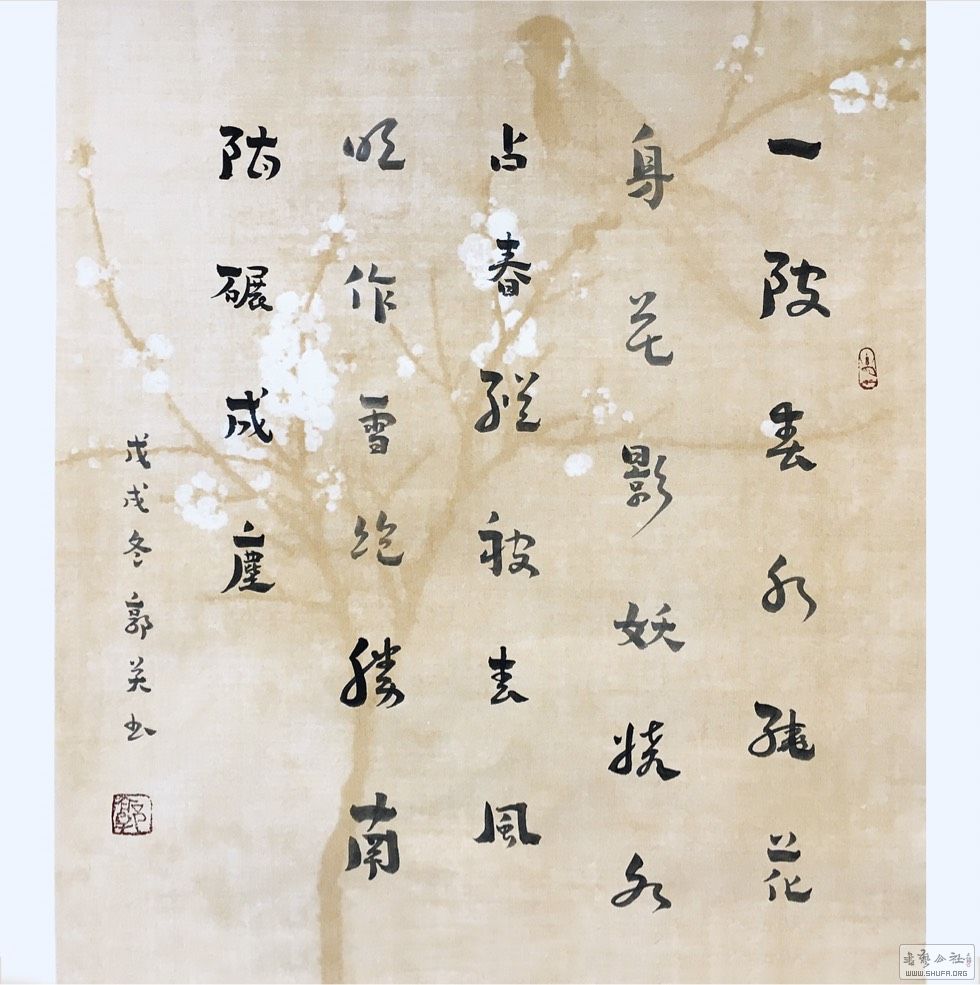 一陂春水繞花
身花影妖娆各
占春縱被春風
吹作雪絶勝南
陌碾成塵
戊戌冬郭书
书艺公社
WWW.SHUFA.ORG